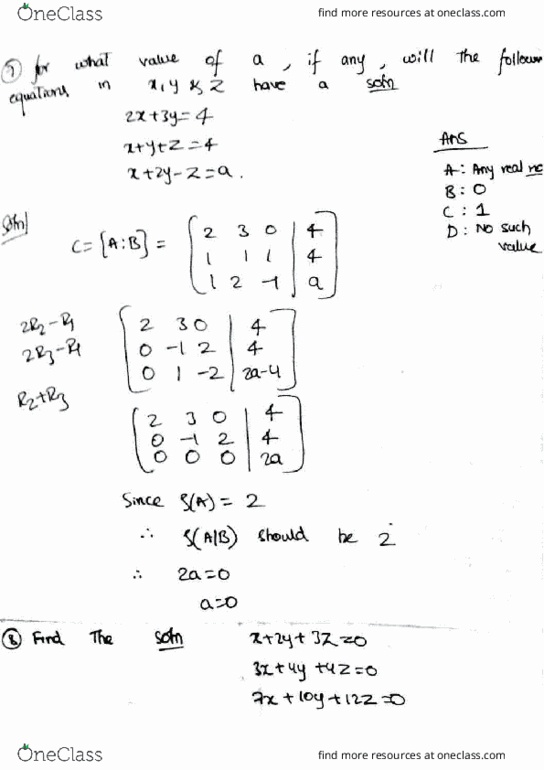 OneClass find more resources at oneclass.com
⑦ for what value of a, if any, will the follow
equations in x, y & z have a soln
2x+3y=4
x+y+z=4
x+2y-z=a.
Ans
A: Any real no
B: 0
C: 1
D: No such value
Soln
C=[A:B] = [2 3 0 | 4
1 1 1 | 4
1 2 -1 | a]
2R2-R1
2R3-R1
[2 3 0 | 4
0 -1 2 | 4
0 1 -2 | 2a-4]
R2+R3
[2 3 0 | 4
0 -1 2 | 4
0 0 0 | 2a]
Since ρ(A) = 2
∴ ρ(A|B) should be 2
∴ 2a=0
a=0
⑧ Find The soln x+2y+3z=0
3x+4y+4z=0
7x+10y+12z=0
OneClass find more resources at oneclass.com